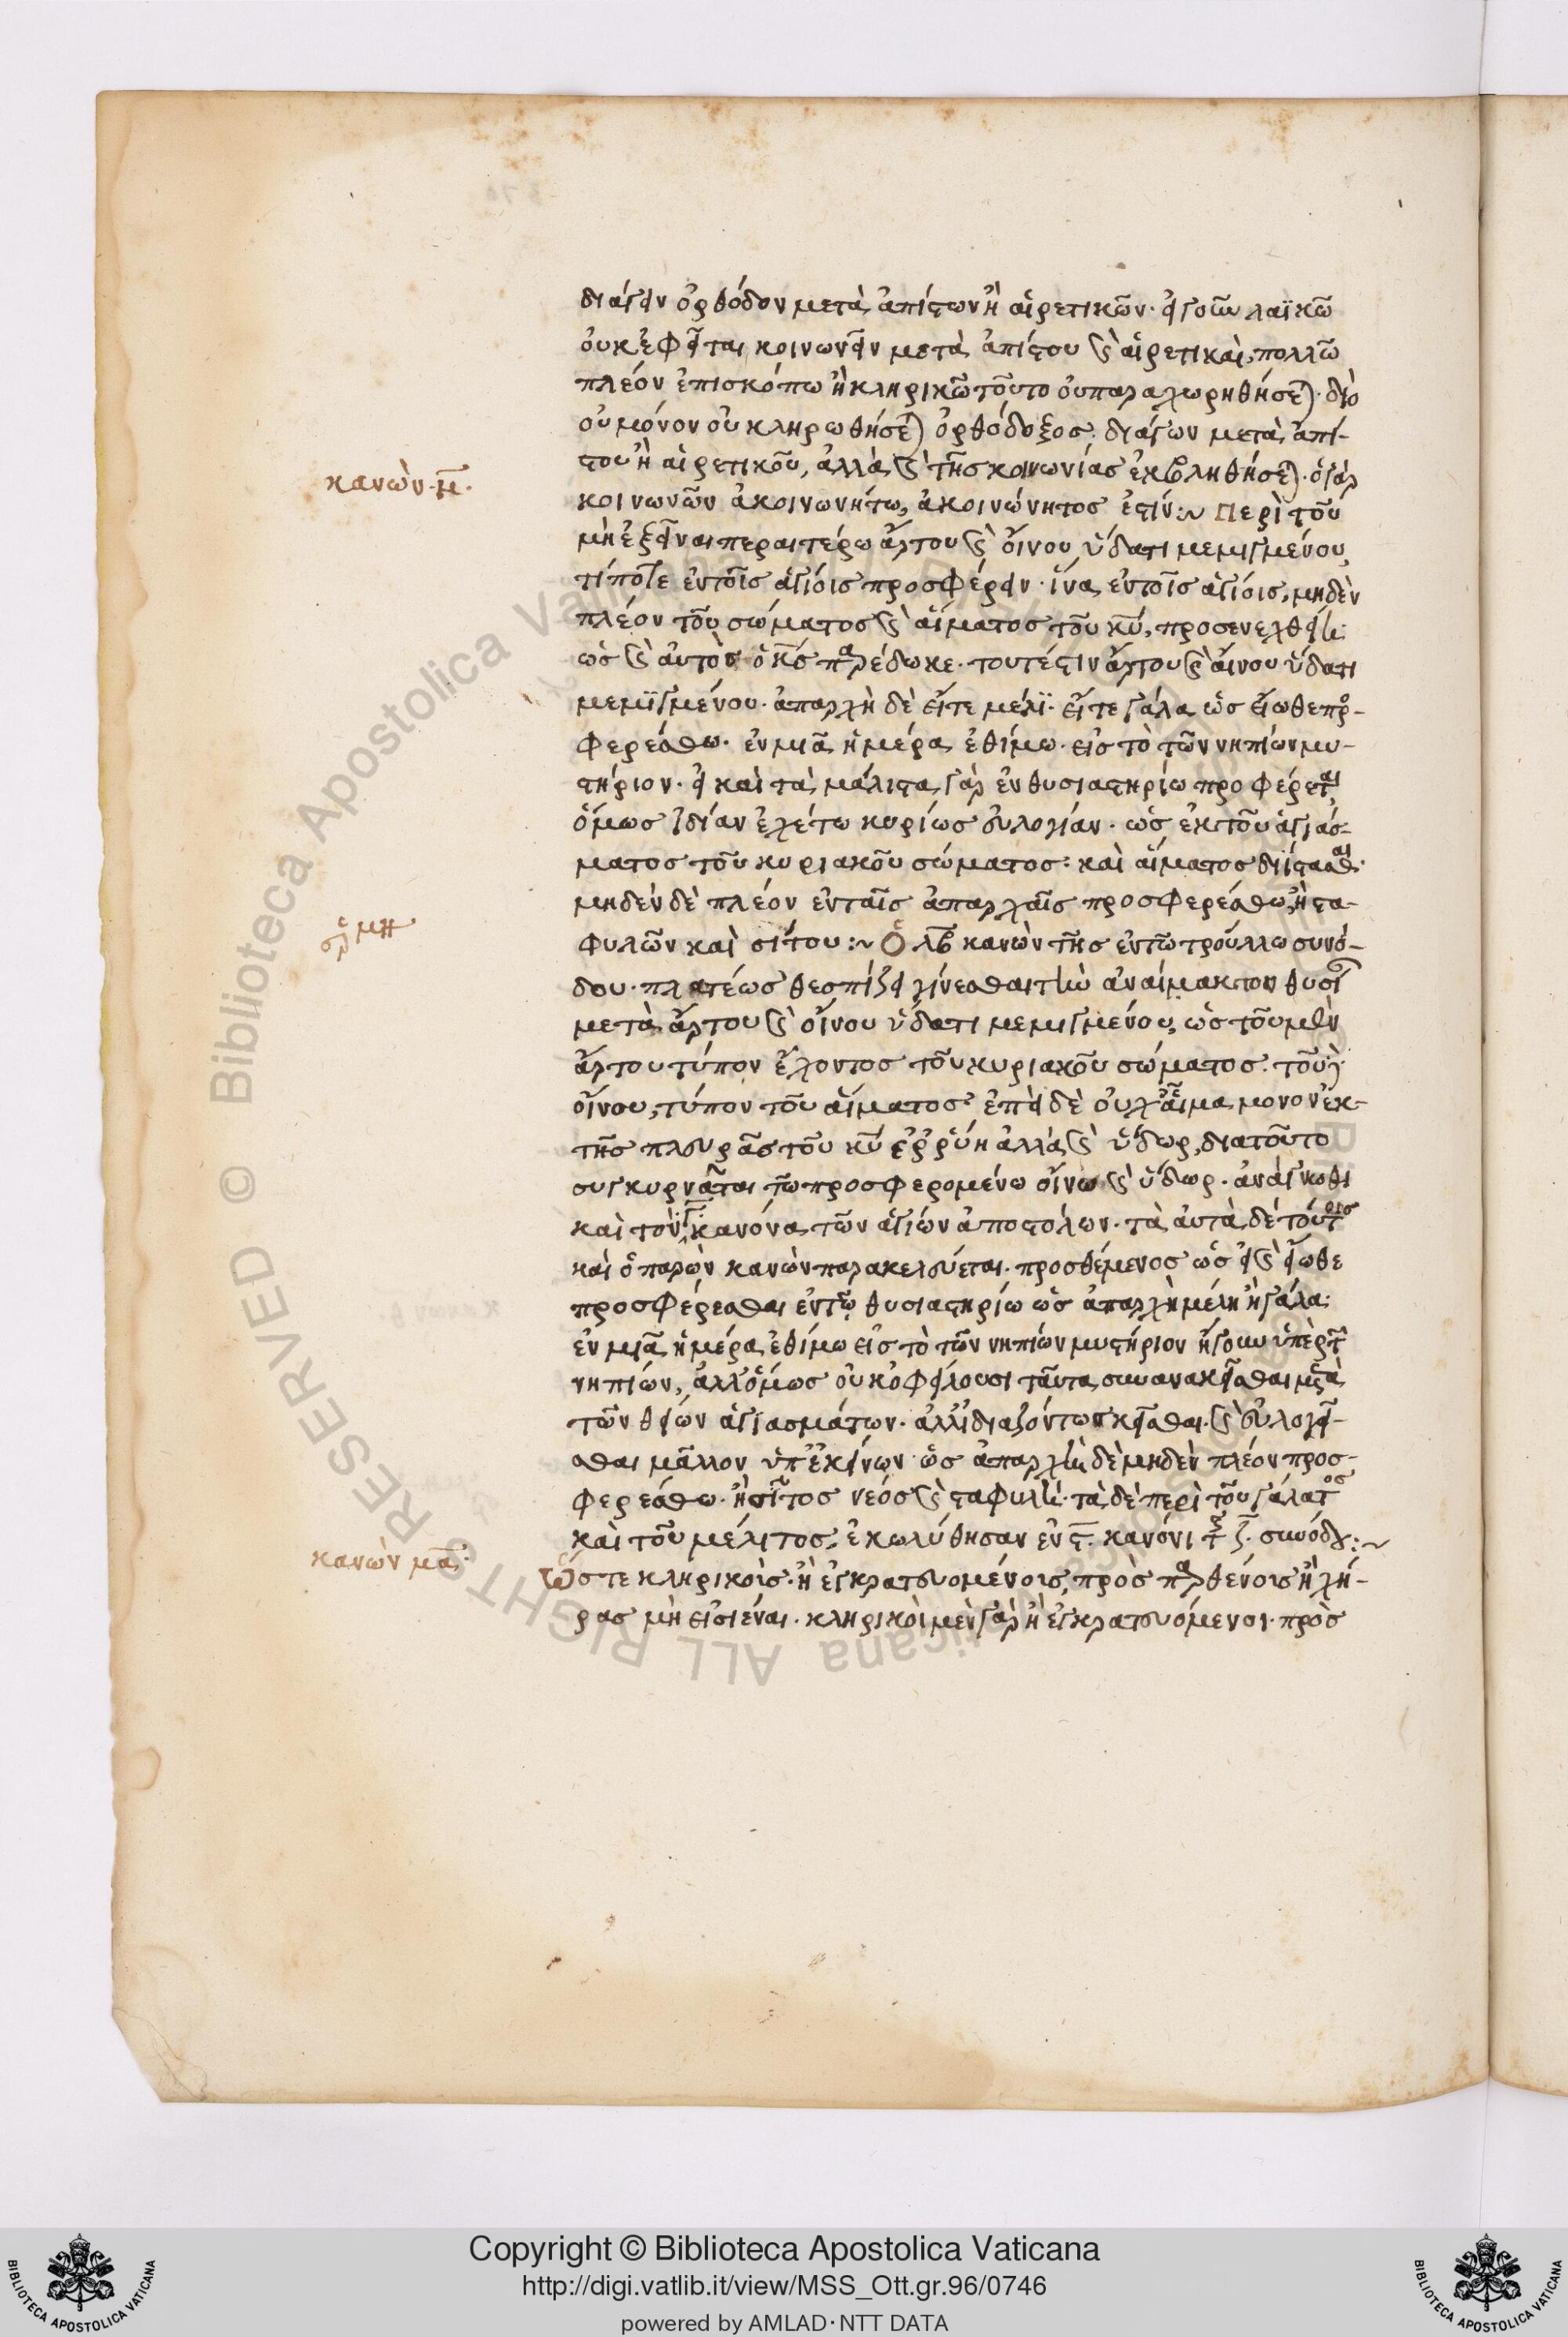 διάγειν ὀρθόδον μετὰ ἀπίστων ἢ αἱρετικῶν· εἰ γοῦν λαϊκῶ
οὐκ ἐφεῖται κοινωνεῖν μετὰ ἀπίστου ϗ αἱρετικοὶ, πολλῶ
πλέον ἐπισκόπω ἢ κληρικῶ τοῦτο οὐ παραχωρηθήσεται· διὸ
οὐ μόνον οὐ κληρωθήσεται ὀρθόδοξος διάγων μετὰ ἀπί-
στου ἢ αἱρετικοῦ, ἀλλὰ ϗ τῆς κοινωνίας ἐκβληθήσεται· ὁ γὰρ
κανὼν μ̅
κοινωνῶν ἀκοινωνήτω, ἀκοινώνητος ἐστίν :~ Περὶ τοῦ
μὴ ἐξεῖναι περαιτέρω ἄρτου ϗ οἴνου ὕδατι μεμιγμένου,
τίποτε ἐν τοῖς ἁγίοις προσφέρειν· ἵνα ἐν τοῖς ἁγίοις, μηδὲν
πλέον τοῦ σώματος ϗ αἵματος τοῦ κ̅υ̅, προσενεχθείη
ὡς ϗ αὐτὸς ὁ κ̅ς̅ παρέδωκε· τουτέστιν ἄρτου ϗ οἴνου ὕδατι
μεμϊγμένου· ἀπαρχὴ δὲ εἴτε μέλι· εἴτε γάλα ὡς εἴωθε προ-
φερέσθω· ἐν μιᾶ ἡμέρα ἐθίμω· εἰς τὸ τῶν νηπίων μυ-
στήριον· εἰ καὶ τὰ μάλιστα γὰρ ἐν θυσιαστηρίω προφέρεται
ὅμως ἰδίαν ἐχέτω κυρίως εὐλογίαν· ὡς ἐκ τοῦ ἁγιάσ-
ματος τοῦ κυριακοῦ σώματος· καὶ αἵματος διΐστασθαι·
μηδὲν δὲ πλέον ἐν ταῖς ἀπαρχαῖς προσφερέσθω, ἢ στα-
φυλῶν καὶ σίτου :~ Ὁ λβ κανὼν τῆς ἐν τῶ τρούλλω συνό-
δου· πλατέως θεσπίζει γίνεσθαι τὴν ἀναίμακτον θυσίαν
μετὰ ἄρτου ϗ οἴνου ὕδατι μεμιγμένου, ὡς τοῦ μὲν
ἄρτου τύπον ἔχοντος τοῦ κυριακοῦ σώματος· τοῦ δὲ
οἴνου, τύπον τοῦ αἵματος· ἐπεὶ δὲ οὐχ αἷμα μόνον ἐκ
τῆς πλευρᾶς τοῦ κ̅υ̅ ἐῤῥύη ἀλλὰ ϗ ὕδωρ, διατοῦτο
συγκυρνᾶται τῶ προσφερομένω οἴνω ϗ ὕδωρ· ἀνάγνωθι
καὶ τὸν γ̅ κανόνα τῶν ἁγίων ἀποστόλων· τὰ αὐτὰ δὲ τούτοις
καὶ ὁ παρὼν κανὼν παρακελεύεται· προσθέμενος ὡς εἰ ϗ εἴωθε
προσφέρεσθαι ἐν τῶ θυσιαστηρίω ὡς ἀπαρχὴ μέλη ἢ γάλα
ἐν μιᾶ ἡμέρα ἐθίμω εἰς τὸ τῶν νηπίων μυστήριον ἤγουν ὑπὲρ τῶν
νηπίων, ἀλλ' ὅμως οὐκ ὀφείλουσι ταῦτα συνανακεῖσθαι μετὰ
τῶν θείων ἁγιασμάτων· ἀλλ' ἰδιαζόντως κεῖσθαι· ϗ εὐλογεῖ-
σθαι μᾶλλον ὑπ' ἐκείνων· ὡς ἀπαρχὴν δὲ μηδὲν πλέον προσ-
φερέσθω· ἢ σῖτος νέος ϗ σταφυλὴ· τὰ δὲ περὶ τοῦ γάλατος
καὶ τοῦ μέλιτος, ἐκωλύθησαν ἐν κανόνι τῆς ζ̅ συνόδου :~
κανὼν μα̅
Ὥστε κληρικοὶς· ἢ ἐγκρατευομένοις, πρὸς παρθένοις ἢ χή-
ρας μὴ εἰσιέναι· κληρικοὶ μὲν γὰρ ἢ ἐγκρατευόμενοι· πρὸς
Copyright © Biblioteca Apostolica Vaticana
http://digi.vatlib.it/view/MSS_Ott.gr.96/0746
powered by AMLAD·NTT DATA
BIBLIOTECA APOSTOLICA VATICANA
BIBLIOTECA APOSTOLICA VATICANA